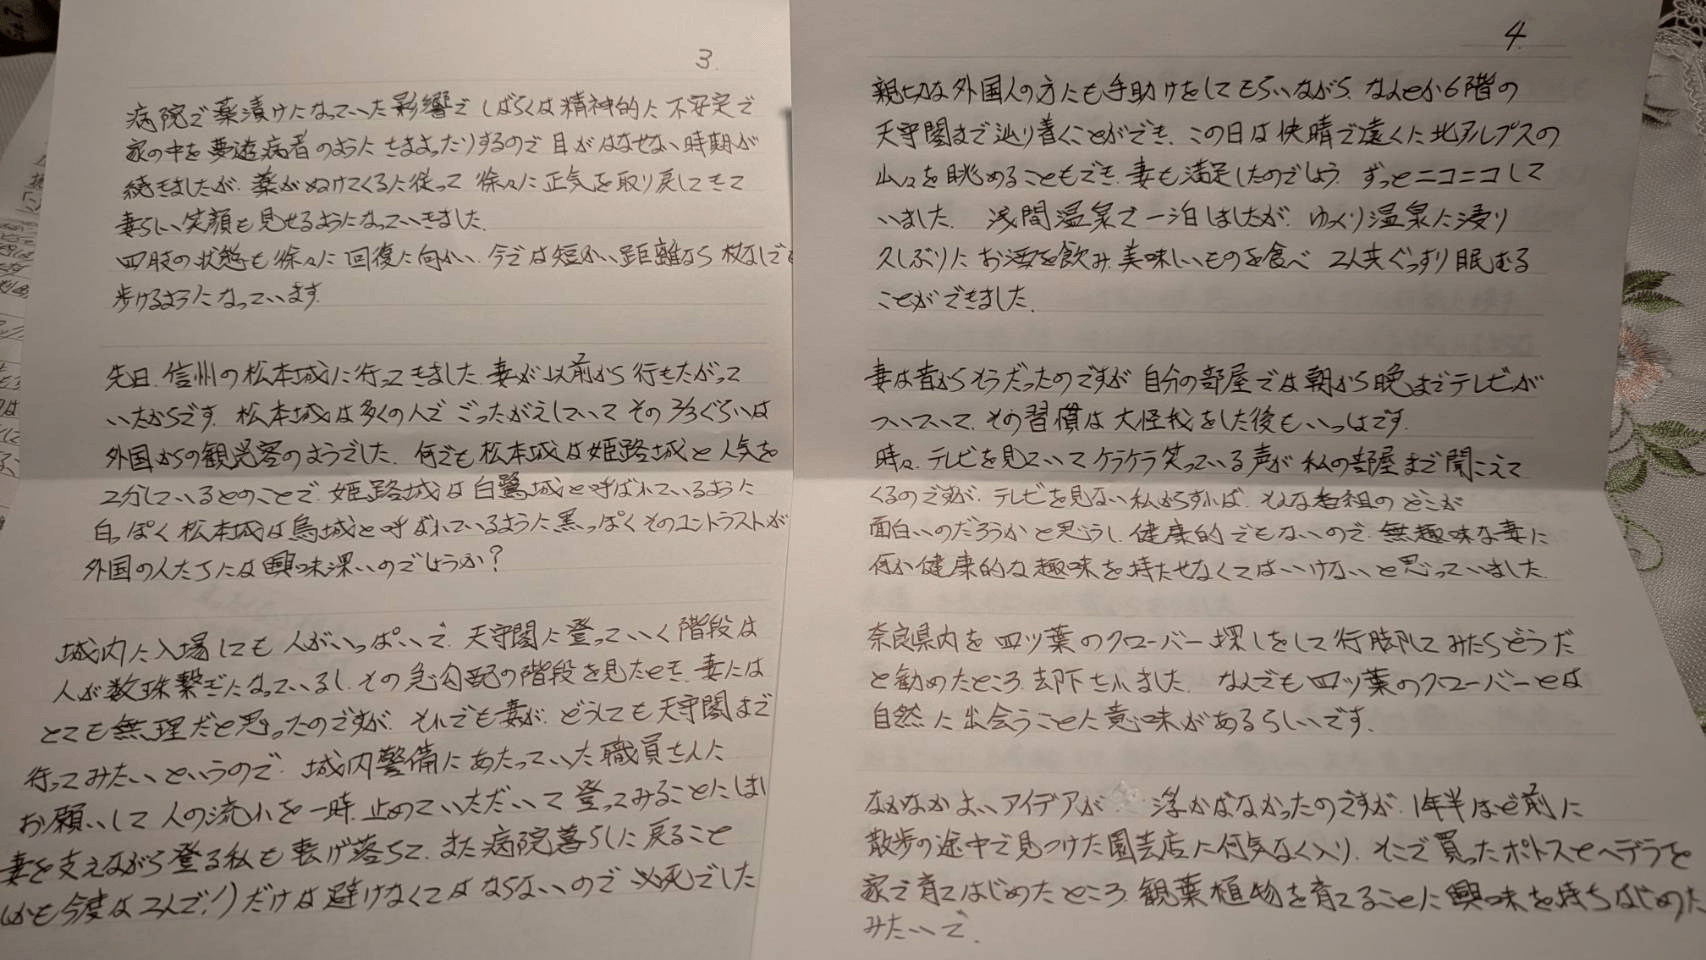 3.
病院で薬漬けになっていた影響でしばらくは精神的に不安定で
家の中を夢遊病者のようにさまよったりするので目がはなせない時期が
続きましたが、薬がぬけてくるに従って徐々に正気を取り戻してきて
妻らしい笑顔も見せるようになっていきました。
四肢の状態も徐々に回復に向かい、今では短かい距離なら杖なしでも
歩けるようになっています。
先日、信州の松本城に行ってきました。妻が以前から行きたがって
いたからです。松本城は多くの人でごったがえしていてその2/3ぐらいは
外国からの観光客のようでした。何でも松本城は姫路城と人気を
2分しているとのことで、姫路城は白鷺城と呼ばれているように
白っぽく松本城は烏城と呼ばれているように黒っぽくそのコントラストが
外国の人たちには興味深いのでしょうか?
城内に入場しても人がいっぱいで、天守閣に登っていく階段は
人が数珠繋ぎになっているし、その急勾配の階段を見たとき、妻には
とても無理だと思ったのですが、それでも妻が、どうしても天守閣まで
行ってみたいというので、城内警備にあたっていた職員さんに
お願いして人の流れを一時、止めていただいて登ってみることにしまし
妻を支えながら登る私も転げ落ちて、また病院暮らしに戻ること
(しかも今度は2人で!)だけは避けなくてはならないので必死でした
4.
親切な外国人の方にも手助けをしてもらいながら、なんとか6階の
天守閣まで辿り着くことができ、この日は快晴で遠くに北アルプスの
山々を眺めることもでき、妻も満足したのでしょう、ずっとニコニコして
いました。浅間温泉で一泊しましたが、ゆっくり温泉に浸り
久しぶりにお酒を飲み、美味しいものを食べ、2人共ぐっすり眠むる
ことができました。
妻は昔からそうだったのですが自分の部屋では朝から晩までテレビが
ついていて、その習慣は大怪我をした後もいっしょです。
時々、テレビを見ていてケラケラ笑っている声が私の部屋まで聞こえて
くるのですが、テレビを見ない私からすれば、そんな番組のどこが
面白いのだろうかと思うし、健康的でもないので、無趣味な妻に
何か健康的な趣味を持たせなくてはいけないと思っていました。
奈良県内を四ツ葉のクローバー探しをして行脚してみたらどうだ
と勧めたところ、却下されました。なんでも四ツ葉のクローバーとは
自然に出会うことに意味があるらしいです。
なかなかよいアイデアが浮かばなかったのですが、1年半ほど前に
散歩の途中で見つけた園芸店に何気なく入り、そこで買ったポトスとヘデラを
家で育てはじめたところ、観葉植物を育てることに興味を持ちはじめた
みたいで、